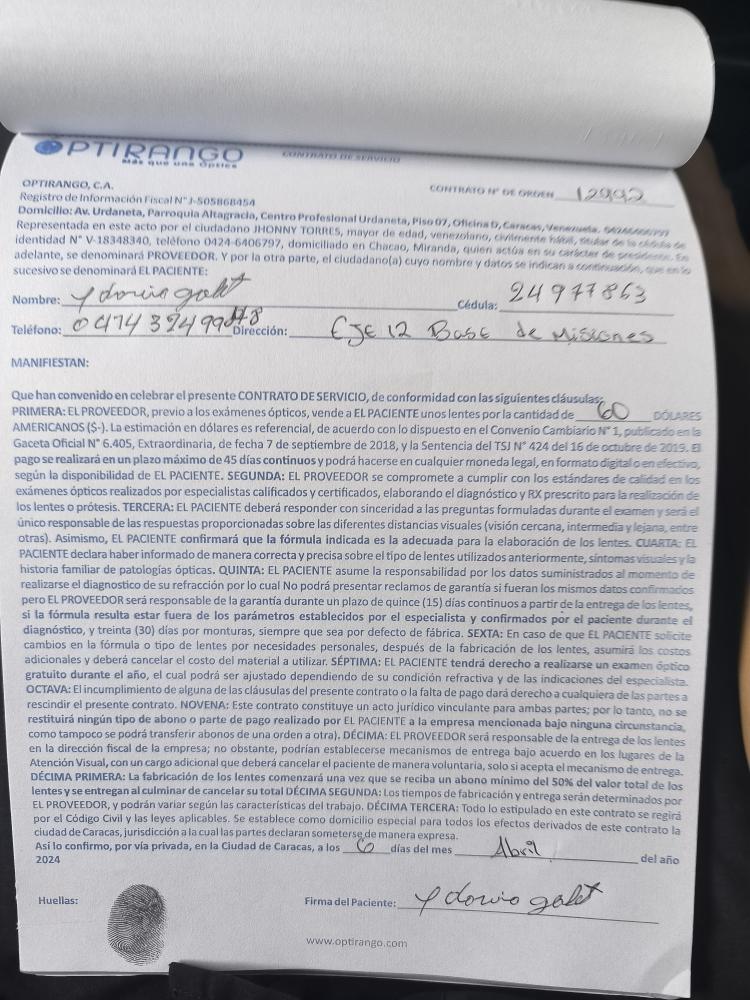 OPTIRANGO
Más que una Óptica
CONTRATO DE SERVICIO
OPTIRANGO, C.A.
CONTRATO N° DE ORDEN 12992
Registro de Información Fiscal N° J-505868454
Domicilio: Av. Urdaneta, Parroquia Altagracia, Centro Profesional Urdaneta, Piso 07, Oficina D, Caracas, Venezuela.
Representada en este acto por el ciudadano JHONNY TORRES, mayor de edad, venezolano, civilmente hábil, titular de la cédula de
identidad N° V-18348340, teléfono 0424-6406797, domiciliado en Chacao, Miranda, quien actúa en su carácter de presidente. En
adelante, se denominará PROVEEDOR. Y por la otra parte, el ciudadano(a) cuyo nombre y datos se indican a continuación, que en lo
sucesivo se denominará EL PACIENTE:
Nombre: Cédula: 24977863
Teléfono: Dirección: EJE 12 Base de Misiones
MANIFIESTAN:
Que han convenido en celebrar el presente CONTRATO DE SERVICIO, de conformidad con las siguientes cláusulas:
PRIMERA: EL PROVEEDOR, previo a los exámenes ópticos, vende a EL PACIENTE unos lentes por la cantidad de 60 DÓLARES
AMERICANOS ($-). La estimación en dólares es referencial, de acuerdo con lo dispuesto en el Convenio Cambiario N° 1, publicado en la
Gaceta Oficial N° 6.405, Extraordinaria, de fecha 7 de septiembre de 2018, y la Sentencia del TSJ N° 424 del 16 de octubre de 2019. El
pago se realizará en un plazo máximo de 45 días continuos y podrá hacerse en cualquier moneda legal, en formato digital o en efectivo,
según la disponibilidad de EL PACIENTE. SEGUNDA: EL PROVEEDOR se compromete a cumplir con los estándares de calidad en los
exámenes ópticos realizados por especialistas calificados y certificados, elaborando el diagnóstico y RX prescrito para la realización de
los lentes o prótesis. TERCERA: EL PACIENTE deberá responder con sinceridad a las preguntas formuladas durante el examen y será el
único responsable de las respuestas proporcionadas sobre las diferentes distancias visuales (visión cercana, intermedia y lejana, entre
otras). Asimismo, EL PACIENTE confirmará que la fórmula indicada es la adecuada para la elaboración de los lentes. CUARTA: EL
PACIENTE declara haber informado de manera correcta y precisa sobre el tipo de lentes utilizados anteriormente, síntomas visuales y la
historia familiar de patologías ópticas. QUINTA: EL PACIENTE asume la responsabilidad por los datos suministrados al momento de
realizarse el diagnostico de su refracción por lo cual No podrá presentar reclamos de garantía si fueran los mismos datos confirmados
pero EL PROVEEDOR será responsable de la garantía durante un plazo de quince (15) días continuos a partir de la entrega de los lentes,
si la fórmula resulta estar fuera de los parámetros establecidos por el especialista y confirmados por el paciente durante el
diagnóstico, y treinta (30) días por monturas, siempre que sea por defecto de fábrica. SEXTA: En caso de que EL PACIENTE solicite
cambios en la fórmula o tipo de lentes por necesidades personales, después de la fabricación de los lentes, asumirá los costos
adicionales y deberá cancelar el costo del material a utilizar. SÉPTIMA: EL PACIENTE tendrá derecho a realizarse un examen óptico
gratuito durante el año, el cual podrá ser ajustado dependiendo de su condición refractiva y de las indicaciones del especialista.
OCTAVA: El incumplimiento de alguna de las cláusulas del presente contrato o la falta de pago dará derecho a cualquiera de las partes a
rescindir el presente contrato. NOVENA: Este contrato constituye un acto jurídico vinculante para ambas partes; por lo tanto, no se
restituirá ningún tipo de abono o parte de pago realizado por EL PACIENTE a la empresa mencionada bajo ninguna circunstancia,
como tampoco se podrá transferir abonos de una orden a otra). DÉCIMA: EL PROVEEDOR será responsable de la entrega de los lentes
en la dirección fiscal de la empresa; no obstante, podrían establecerse mecanismos de entrega bajo acuerdo en los lugares de la
Atención Visual, con un cargo adicional que deberá cancelar el paciente de manera voluntaria, solo si acepta el mecanismo de entrega.
DÉCIMA PRIMERA: La fabricación de los lentes comenzará una vez que se reciba un abono mínimo del 50% del valor total de los
lentes y se entregan al culminar de cancelar su total DÉCIMA SEGUNDA: Los tiempos de fabricación y entrega serán determinados por
EL PROVEEDOR, y podrán variar según las características del trabajo. DÉCIMA TERCERA: Todo lo estipulado en este contrato se regirá
por el Código Civil y las leyes aplicables. Se establece como domicilio especial para todos los efectos derivados de este contrato la
ciudad de Caracas, jurisdicción a la cual las partes declaran someterse de manera expresa.
Así lo confirmo, por vía privada, en la Ciudad de Caracas, a los 6 días del mes Abril del año
2024
Huellas:
Firma del Paciente:
www.optirango.com